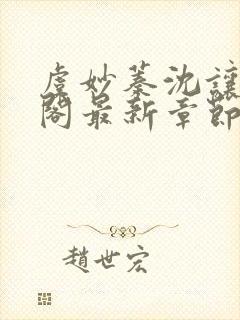 虞妙蓁沈讓
閣最新章節
趙世宏